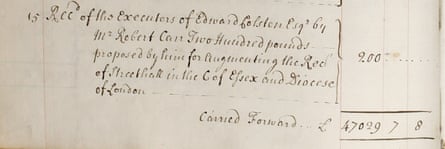 15 Recd of the Executors of Edward Colston Esqr by
Mr Robert Carr Two Hundred pounds
proposed by him for Augmenting the Recy 200 : . . . . .
of Streethall in the C of Essex and Diocese
of London
Carried Forward . . . £ 47029 7 8